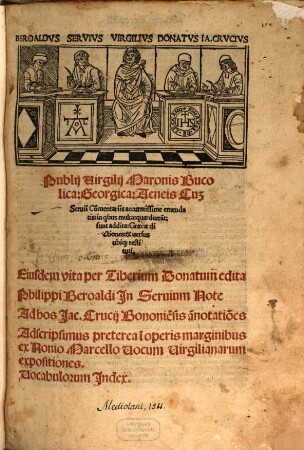 BEROALDVS SERVIVS VIRGILIVS DONATVS IA. CRVCIVS
IHS
Publij Virgilij Maronis Buco
lica: Georgica: Aeneis Cuz
Seruii Cōmentariis accuratissime emenda
tis: in qbus multa: quæ deerāt:
sunt addita: Græcæ di
ctiones: & versus
ubiq; resti
tuti,
Eiusdem vita per Tiberium Donatum edita
Philippi Beroaldi In Seruium Note
Ad hos Jac. Crucij Bononiēsis ānotatiōes
Adscripsimus preterea ī operis marginibus
ex Nonio Marcello Uocum Uirgilianarum
expositiones.
Uocabulorum Index.
Mediolani, 1511.